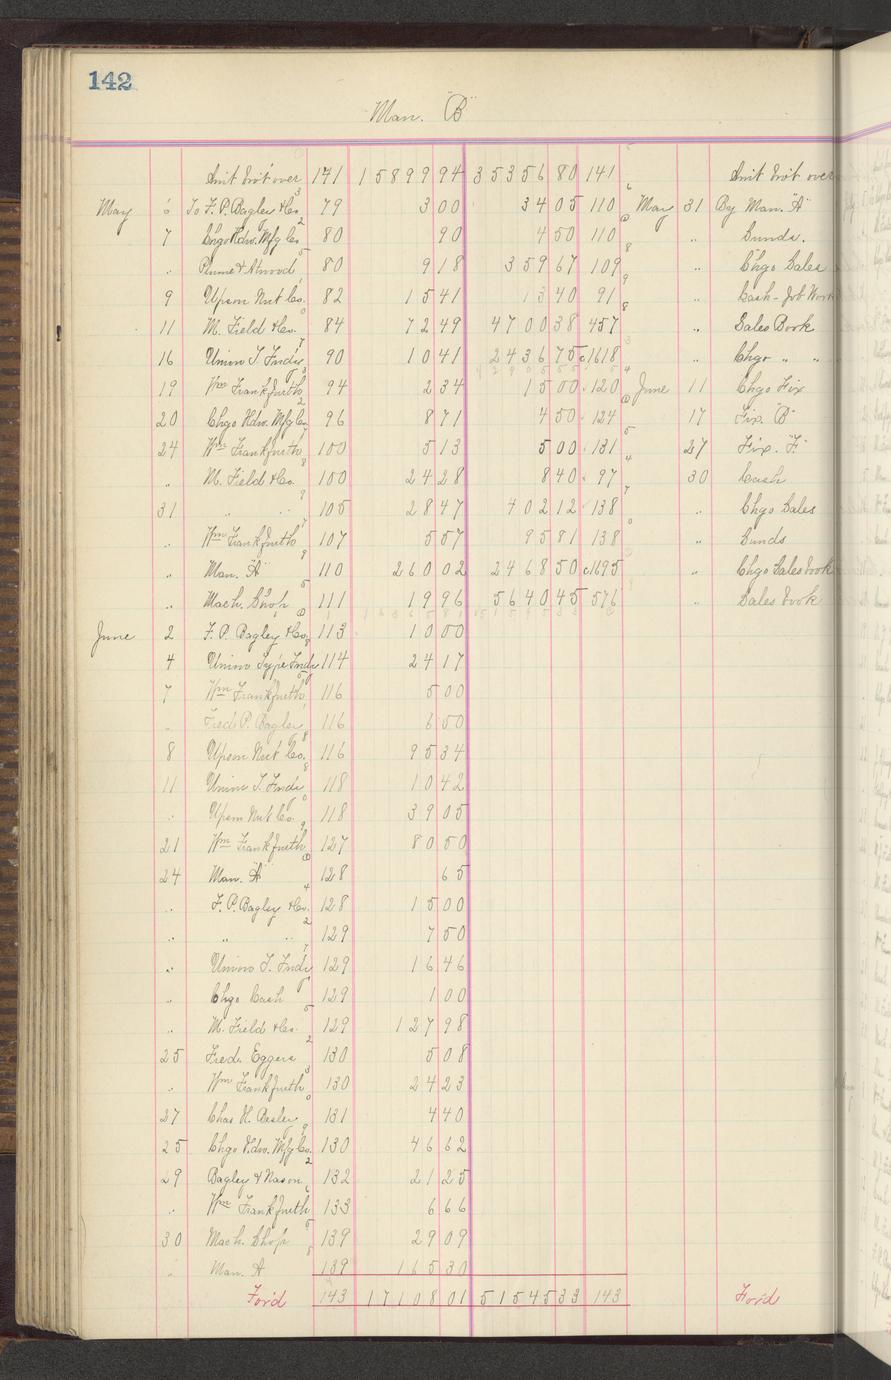 142
Man. "B"
Amt brot over 141 15899 94 35356 80 141 Amt brot over
May 6 To F. P. Bagley & Co. 79 3 00 34 05 110 May 31 By Man. "A"
7 Chgo Hdw. Mfg Co 80 90 4 50 110 " Sunds.
" Plume & Atwood 80 9 18 359 67 109 " Chgo Sales
9 Upson Nut Co. 82 15 41 13 40 91 " Cash - Job Work
11 M. Field & Co. 84 72 49 4700 38 457 " Sales Book
16 Union T Fndy 90 10 41 2436 75 1618 " Chgo " "
19 Wm Frankfurth 94 2 34 15 00 120 June 11 Chgo Fix
20 Chgo Hdw. Mfg Co 96 8 71 4 50 124 17 Fix. "B"
24 Wm Frankfurth 100 5 13 5 00 131 27 Fix. F.
" M. Field & Co. 100 24 28 8 40 97 30 Cash
31 " " 105 28 47 402 12 138 " Chgo Sales
" Wm Frankfurth 107 5 57 95 81 138 " Sunds
" Man. "A" 110 260 02 2468 50 1695 " Chgo Sales book
" Mach. Shop 111 19 96 5640 45 576 " Sales book
June 2 F. P. Bagley & Co 113 10 00
4 Union Type Fndy 114 24 17
7 Wm Frankfurth 116 5 00
" Fred P. Bagley 116 6 50
8 Upson Nut Co. 116 95 34
11 Union T. Fndy 118 10 42
" Upson Nut Co. 118 39 05
21 Wm Frankfurth 127 80 50
24 Man. "A" 128 65
" F. P. Bagley & Co. 128 15 00
" " " 129 7 50
" Union T. Fndy 129 16 46
" Chgo Cash 129 1 00
" M. Field & Co. 129 127 98
25 Fred. Eggers 130 5 08
" Wm Frankfurth 130 24 23
27 Chas H. Besler 131 4 40
25 Chgo Hdw. Mfg Co. 130 46 62
29 Bagley & Nason 132 21 25
" Wm Frankfurth 133 6 66
30 Mach. Shop 139 29 09
" Man. A 139 165 30
For'd 143 17108 01 51545 33 143 For'd